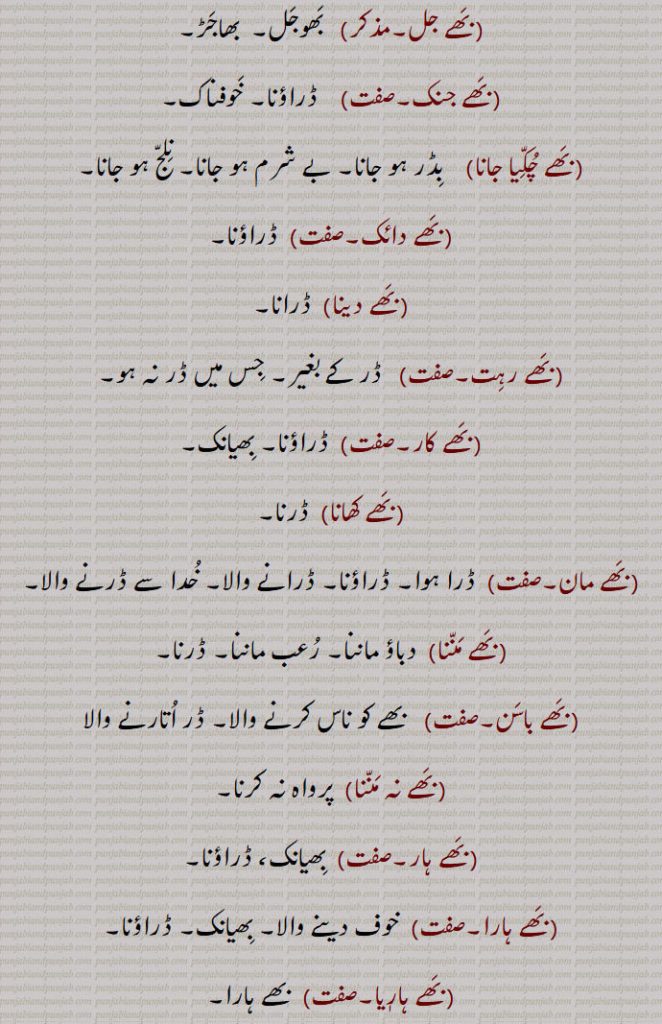 (بَھے جل۔ مذکر) بَھوجَل۔ بھاجَڑ۔
(بَھے جنک۔ صفت) ڈراؤنا۔ خَوفناک۔
(بَھے چُکِّیا جانا) بِڈر ہو جانا۔ بے شرم ہو جانا۔ نِلجّ ہو جانا۔
(بَھے دائک۔ صفت) ڈراؤنا۔
(بَھے دینا) ڈرانا۔
(بَھے رہِت۔ صفت) ڈر کے بغیر۔ جِس میں ڈر نہ ہو۔
(بَھے کار۔ صفت) ڈراؤنا۔ بِھیانک۔
(بَھے کھانا) ڈرنا۔
(بَھے مان۔ صفت) ڈرا ہوا۔ ڈراؤنا۔ ڈرانے والا۔ خُدا سے ڈرنے والا۔
(بَھے مَنّنا) دباؤ ماننا۔ رُعب ماننا۔ ڈرنا۔
(بَھے باسَن۔ صفت) بھے کو ناس کرنے والا۔ ڈر اُتارنے والا
(بَھے نہ مَنّنا) پرواہ نہ کرنا۔
(بَھے ہار۔ صفت) بِھیانک، ڈراؤنا۔
(بَھے ہارا۔ صفت) خوف دینے والا۔ بِھیانک۔ ڈراؤنا۔
(بَھے ہارِیا۔ صفت) بھے ہارا۔